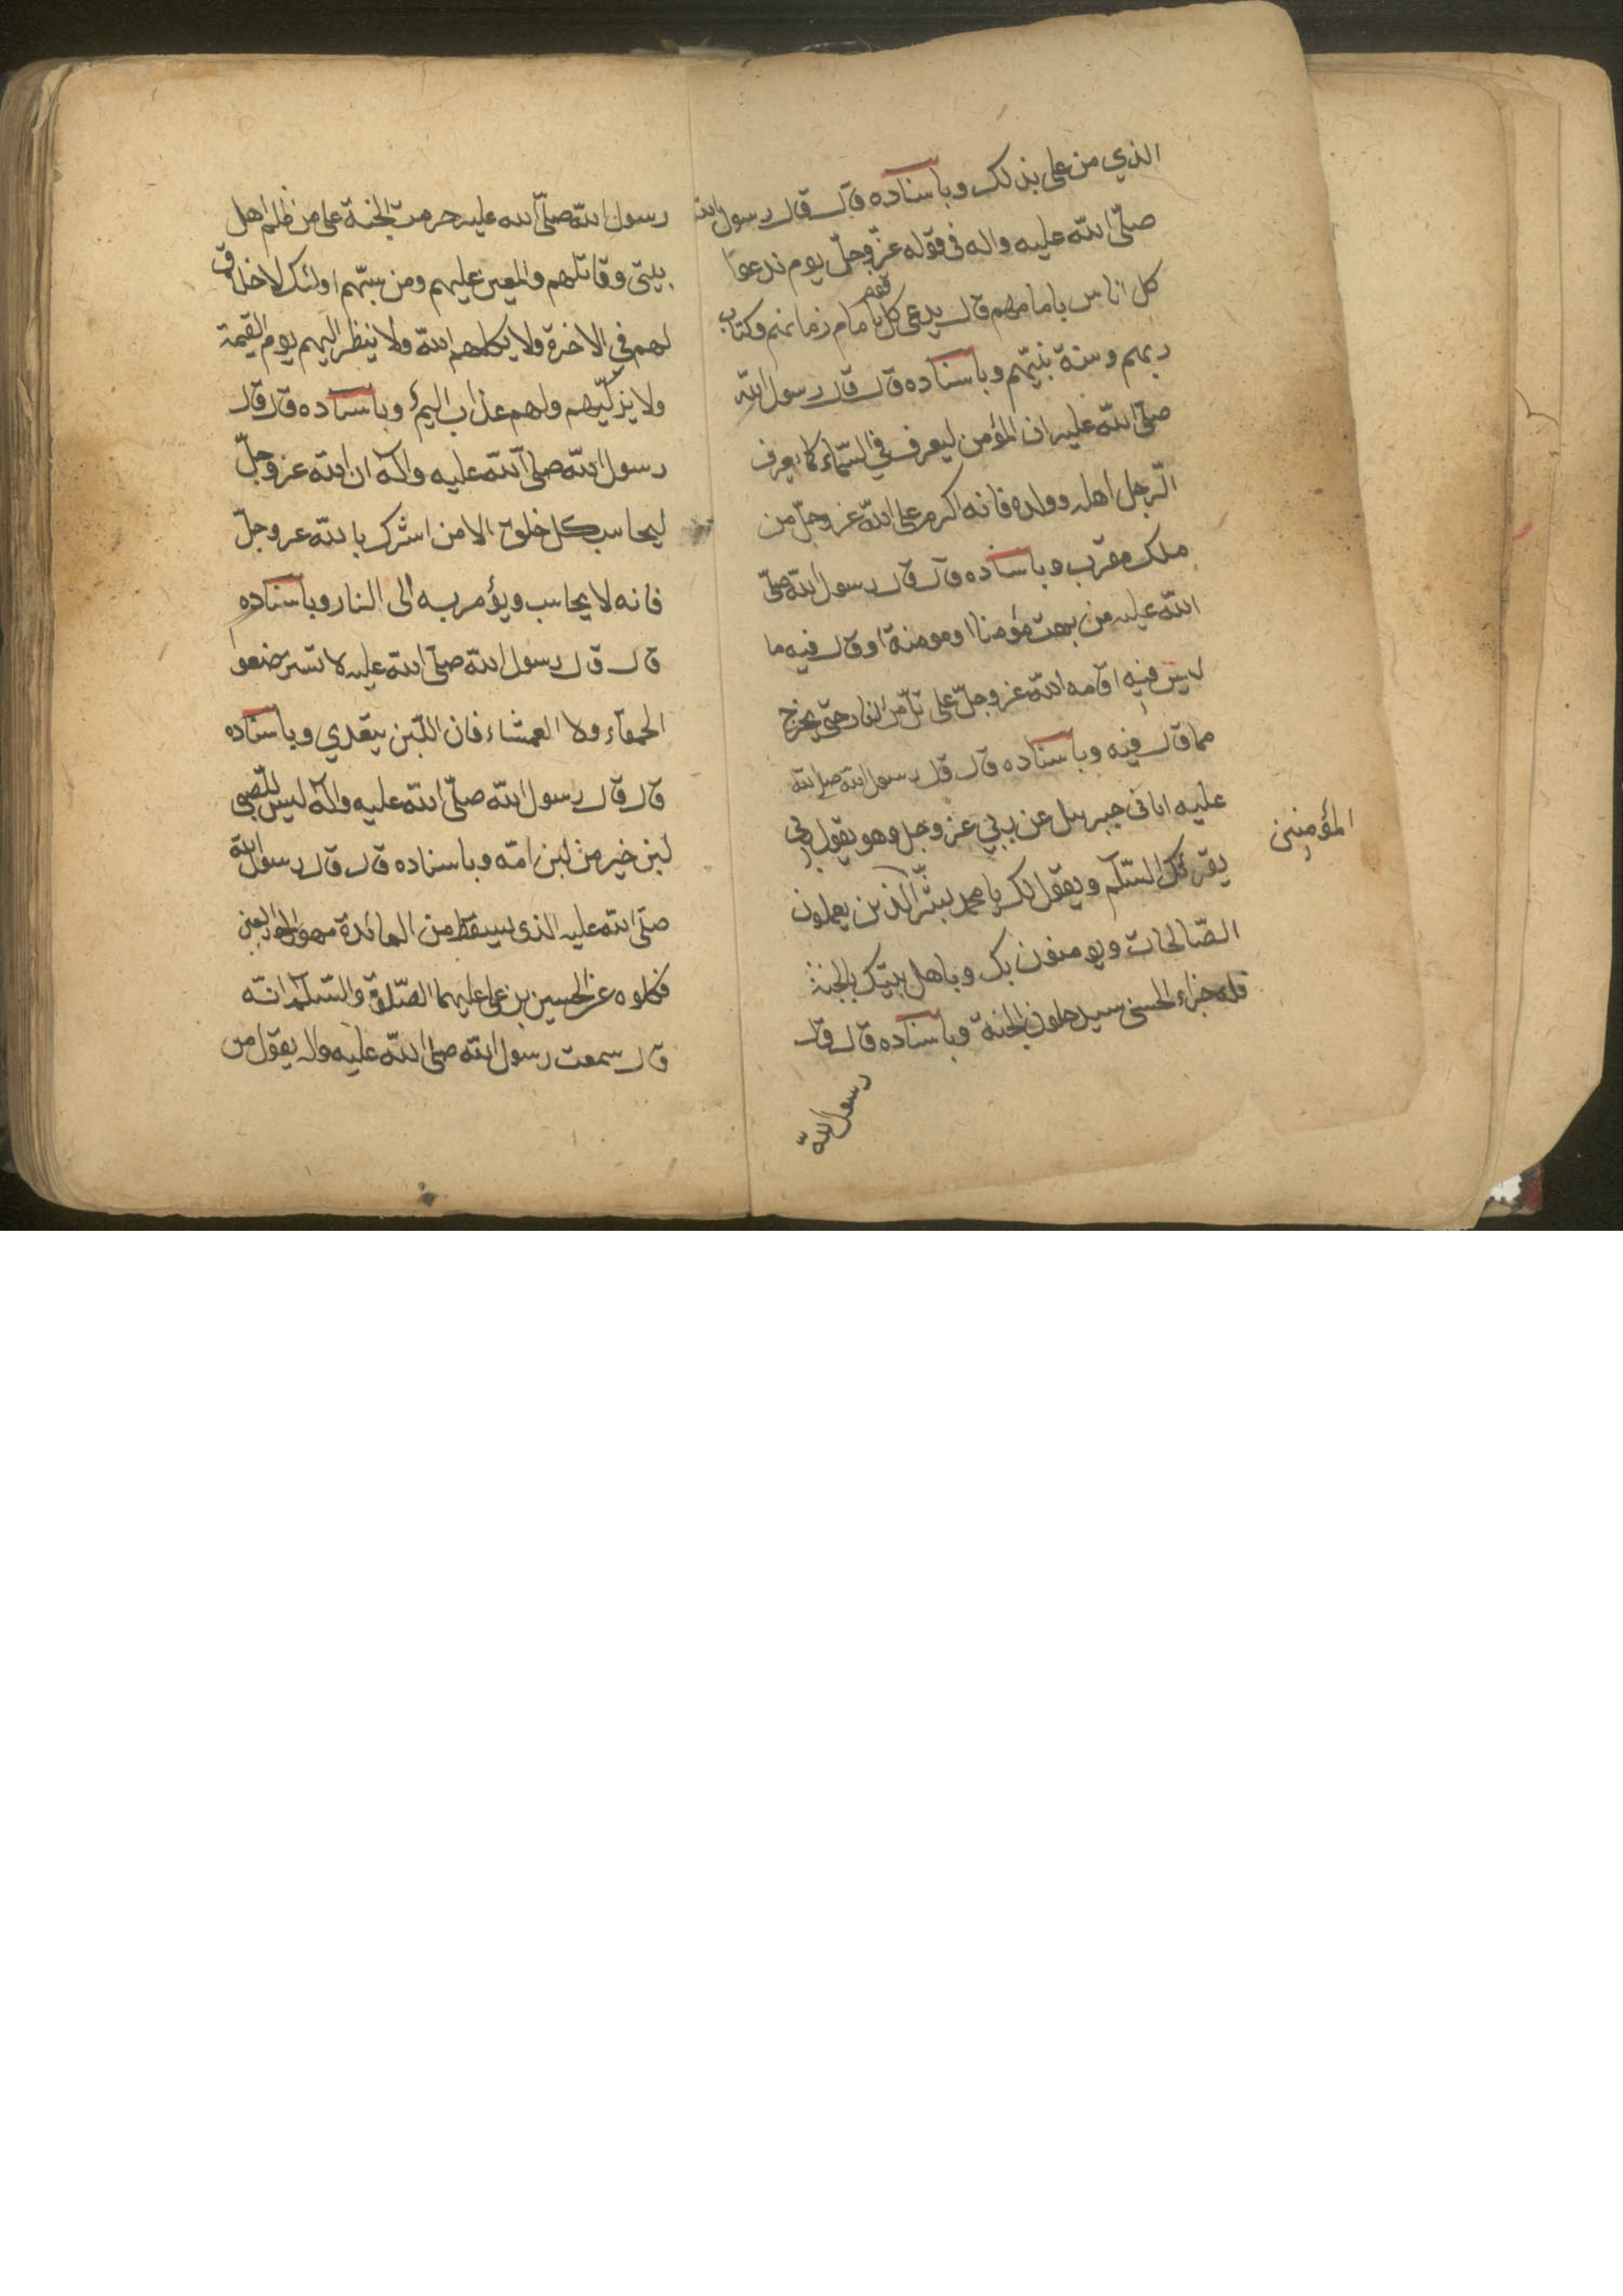 الذي من على بذلك وباسناده قال قال رسول الله
صلّى الله عليه واله فى قوله عزّ وجلّ يوم ندعوا
كل اناس بامامهم قال يدعى كل قوم بامام زمانهم وكتاب
ربهم وسنة نبيّهم وباسناده قال قال رسول الله
صلّى الله عليه ان المؤمن ليعرف في السّماء كما يعرف
الرّجل اهله وولده فانه اكرم على الله عز وجلّ من
ملك مقرب وباسناده قال قال رسول الله صلّى
الله عليه من بهت مؤمنا او مومنة او قال فيه ما
ليس فيه اقامه الله عز وجلّ على تلّ من النار حتى يخرج
مما قال فيه وباسناده قال قال رسول الله صلى الله
عليه اتانى جبرىيل عن ربي عز وجل وهو يقول ربي
يقرئك السّلم ويقول لك يا محمد بشّر الذين يعملون
المؤمنين
الصّالحات ويومنون بك وباهل بيتك بالجنة
فله جزاء الحسنى سيدخلون الجنة وباسناده قال قال
رسول الله
رسول الله صلّى الله عليه حرمت الجنة على من ظلم اهل
بيتى وقاتلهم والمعين عليهم ومن سبّهم اولئك لا خلاق
لهم في الاخرة ولا يكلمهم الله ولا ينظر اليهم يوم القيمة
ولا يزكّيهم ولهم عذاب اليم وباسناده قال قال
رسول الله صلى الله عليه واله ان الله عز وجلّ
ليحاسب كل خلق الا من اشرك بالله عز وجلّ
فانه لا يحاسب ويؤمر به الى النار وباسناده
قال قال رسول الله صلّى الله عليه لا تسترضعوا
الحمقاء ولا العمشاء فان اللّبن يتعدي وباسناده
قال قال رسول الله صلّى الله عليه واله ليس للصّبي
لبن خير من لبن امّه وباسناده قال قال رسول الله
صلّى الله عليه الذى يسقط من المائدة مهور الحور العين
فكلوه عن الحسين بن على عليهما الصّلوة والسّلم انّه
قال سمعت رسول الله صلى الله عليه واله يقول من